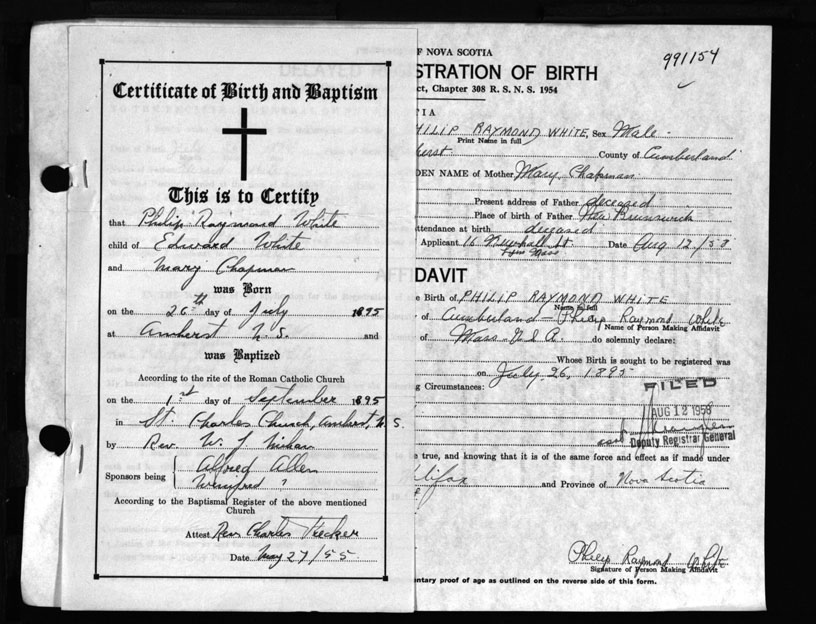 Certificate of Birth and Baptism
This is to Certify
that Philip Raymond White
child of Edward White
and Mary Chapman
was Born
on the 26th day of July 1895
at Amherst N.S. and
was Baptized
According to the rite of the Roman Catholic Church
on the 1st day of September 1895
in St. Charles Church, Amherst, N.S.
by Rev. W. J.
Sponsors being Alfred Allen
Winifred ?
According to the Baptismal Register of the above mentioned
Church
Attest Rev. Charles
Date May 27/55
OF NOVA SCOTIA
991154
STRATION OF BIRTH
ct, Chapter 308 R. S. N. S. 1954
TIA
HILIP RAYMOND WHITE, Sex Male
Print Name in full
herst County of Cumberland
DEN NAME of Mother Mary Chapman
Present address of Father deceased
Place of birth of Father New Brunswick
ttendance at birth deceased
Applicant 16 St. Date Aug 12/58
Mass
DAVIT
e Birth of PHILIP RAYMOND WHITE
Name in full
of Cumberland Philip Raymond White
Name of Person Making Affidavit
of Mass U.S.A. do solemnly declare:
Whose Birth is sought to be registered was
on July 26, 1895
g Circumstances:
FILED
AUG 12 1958
Deputy Registrar General
e true, and knowing that it is of the same force and effect as if made under
lifax and Province of Nova Scotia
Philip Raymond White
Signature of Person Making Affidavit
ntary proof of age as outlined on the reverse side of this form.